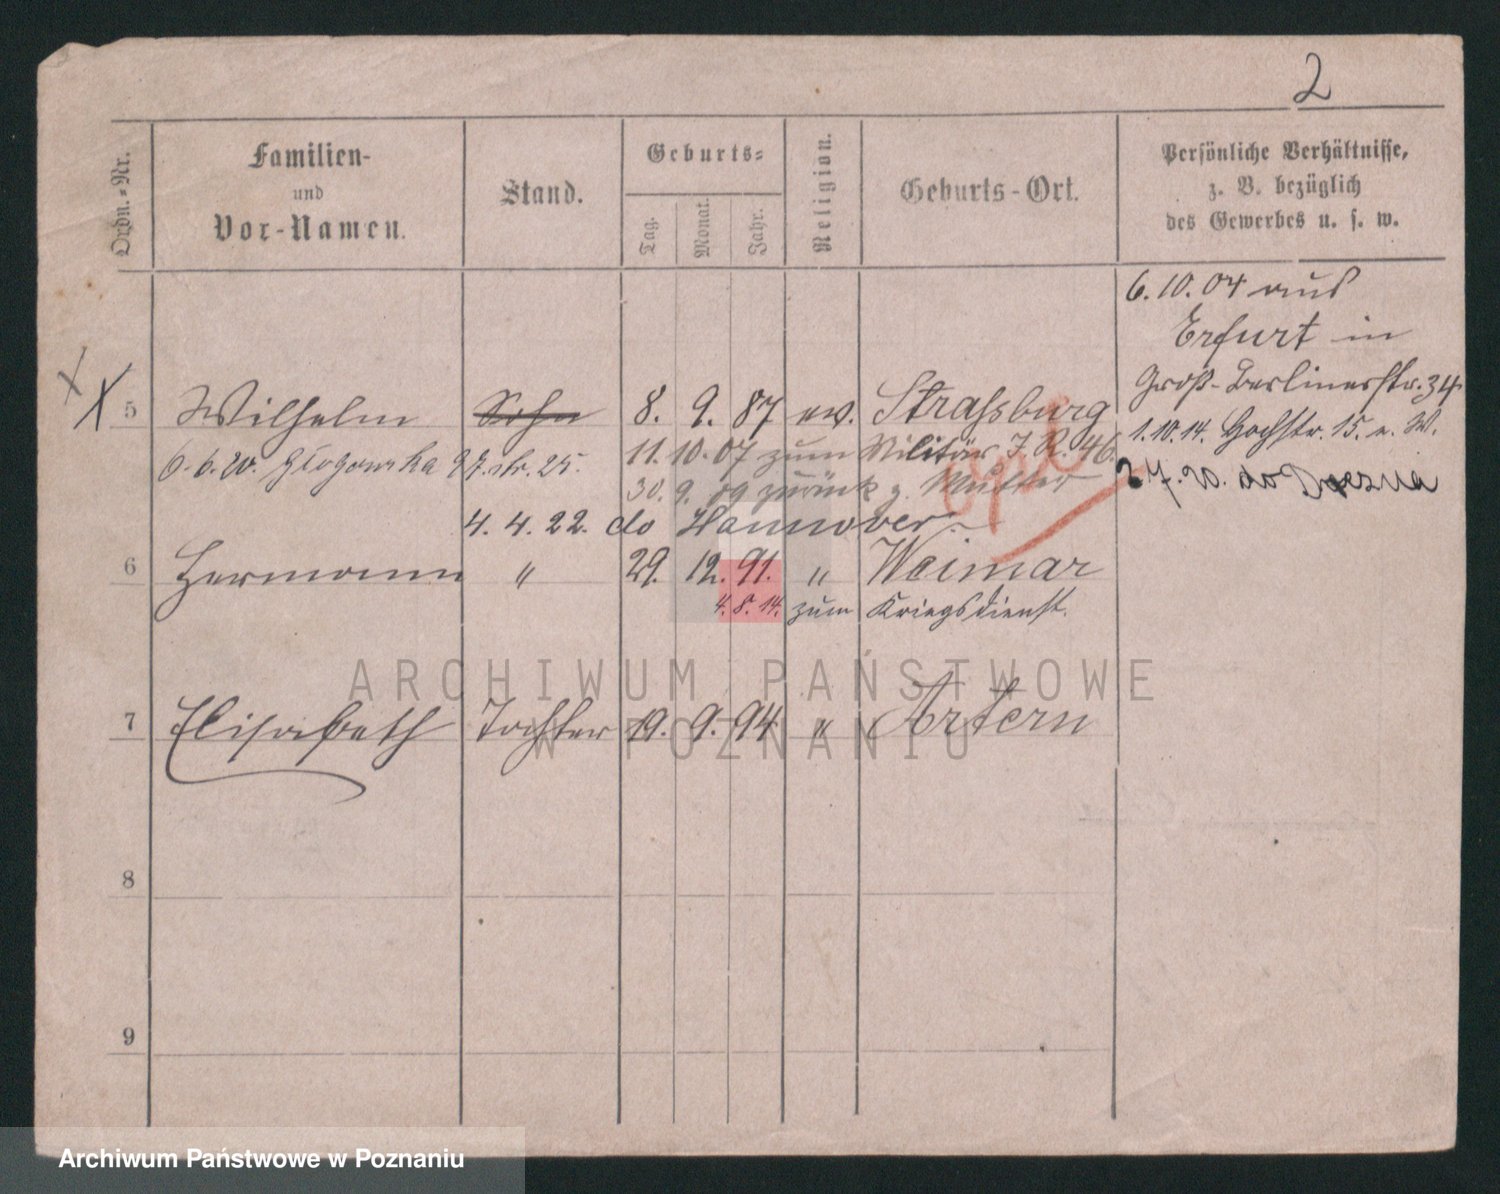 2
Ordn.-Nr.
Familien-
und
Vor-Namen.
Stand.
Geburts-
Tag.
Monat.
Jahr.
Religion.
Geburts-Ort.
Persönliche Verhältnisse,
z. B. bezüglich
des Gewerbes u. s. w.
6. 10. 04 aus
Erfurt in
Groß-Berlinerstr. 34
X X 5 Wilhelm Sohn 8. 9. 87 ev. Strassburg
1. 10. 14. Hochstr. 15. b. W.
6. 6. 20. Głogowska str. 25. 11. 10. 07 zum Militär I. R. 46.
7. 20. do
30. 9. 09 zurück z. Mutter
4. 4. 22. do Hannover
6 Hermann " 29. 12. 91. " Weimar
4. 8. 14. zum Kriegsdienst.
ARCHIWUM PAŃSTWOWE
7 Elisabeth Tochter 19. 9. 94 " Artern
W POZNANIU
8
9
Archiwum Państwowe w Poznaniu